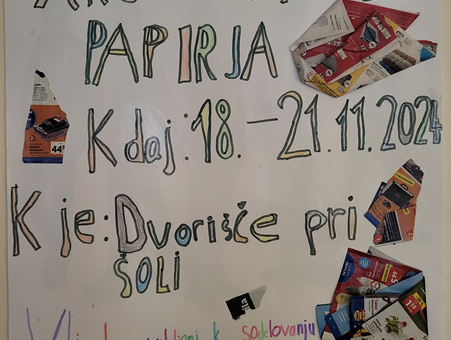 PAPIRJA
Kdaj: 18. – 21.11.2024
Kje: Dvorišče pri
ŠOLI
k sodelovanju